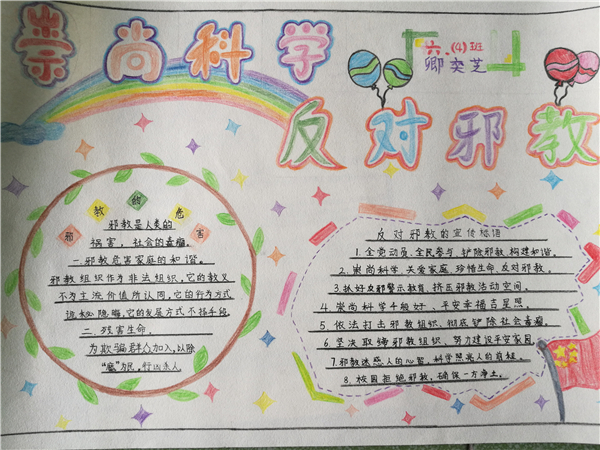 崇尚科学
六.(4)班
卿奕芝
反对邪教
邪教的危害
邪教是人类的
祸害，社会的毒瘤。
一.邪教危害家庭的和谐。
邪教组织作为非法组织，它的教义
不为主流价值所认同，它的行为方式
诡秘隐晦，它的发展方式不择手段
二、残害生命。
为欺骗群众加入，以除
“魔”为民，行凶杀人。
反对邪教的宣传标语
1.全党动员、全民参与、铲除邪教、构建和谐。
2.崇尚科学、关爱家庭、珍惜生命、反对邪教。
3.抓好反邪警示教育、挤压邪教活动空间。
4.崇尚科学千般好、平安幸福吉星照。
5.依法打击邪教组织、彻底铲除社会毒瘤。
6.坚决取缔邪教组织、努力建设平安家园
7.邪教迷惑人的心智，科学照亮人的前程。
8.校园拒绝邪教，确保一方净土。